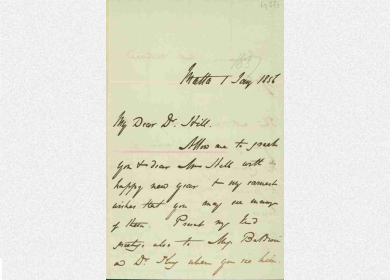 Malta 1 Jany 1856
My Dear Dr. Hill.
Allow me to greet
you & dear Mrs Hill with a
happy new year & my earnest
wishes that you may see many
of them. Present my kind
greetings also to
Dr. when you see him